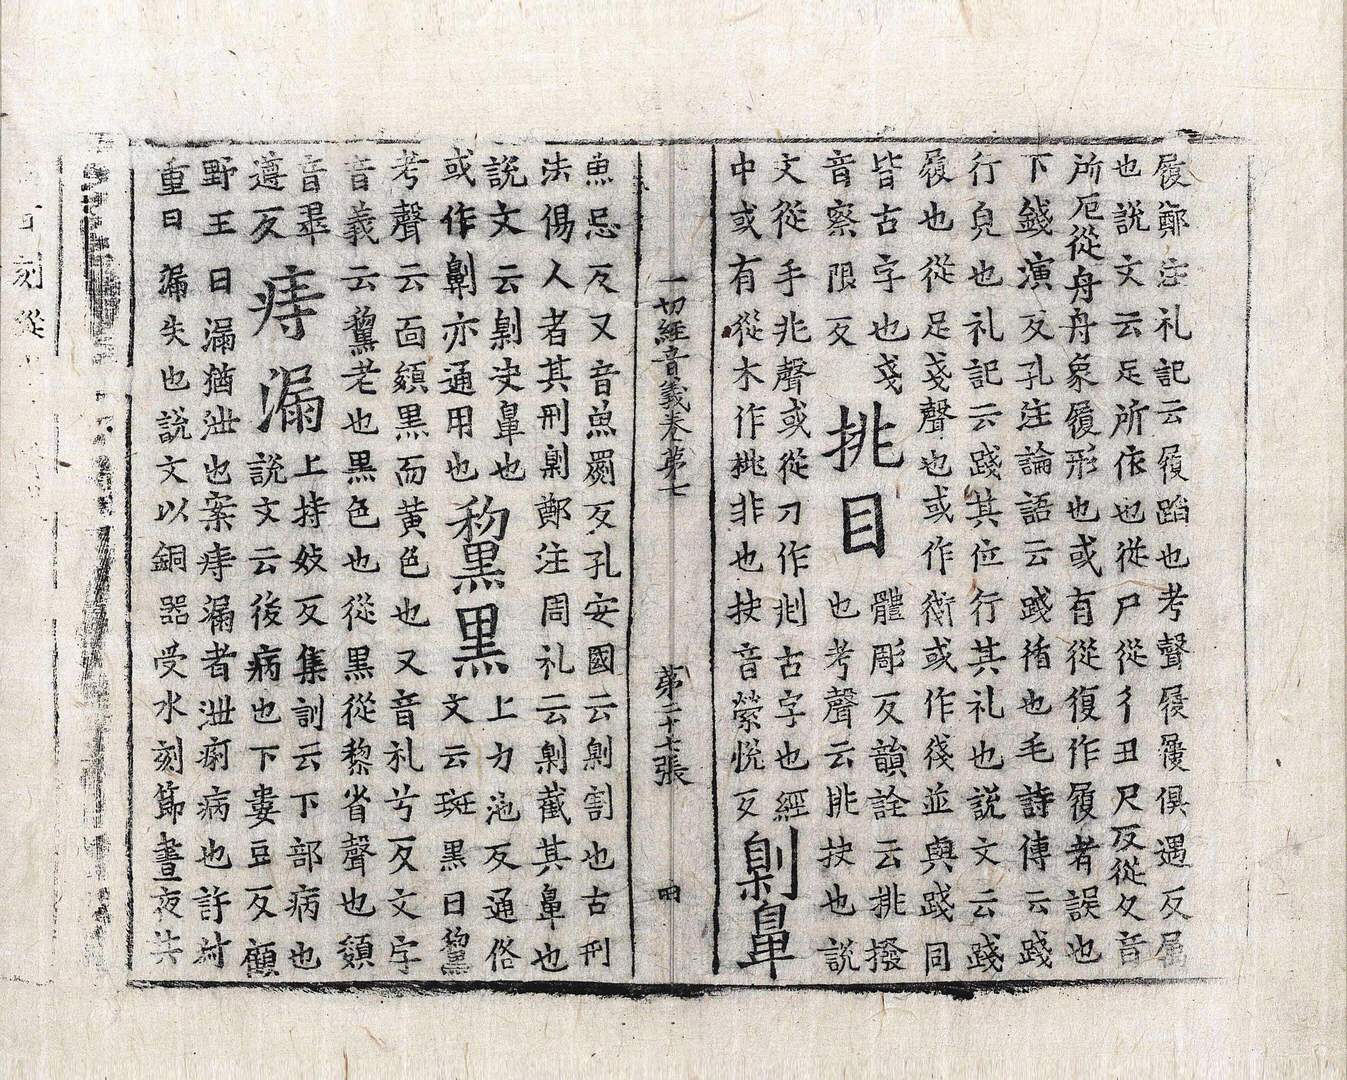 履鄭注礼記云履蹈也考聲屐𡳐俱遇反属
也說文云足所依也從尸從彳丑尺反從夊音
所戹從舟舟象履形也或有從復作履者誤也
下錢演反孔注論語云踐循也毛詩傳云踐
行皃也礼記云踐其位行其礼也說文云踐
履也從足戔聲也或作衜或作後並與踐同
皆古字也戔
音察限反
挑目
體彫反韻詮云挑撥
也考聲云挑抉也說
文從手兆聲或從刀作㓨古字也經
中或有從木作桃非也抉音縈悅反
劓鼻
一切經音義卷第七
第二十七張
魚忌反又音魚罽反孔安國云劓割也古刑
法傷人者其刑劓鄭注周礼云劓截其鼻也
說文云劓决鼻也
或作劓亦通用也
黧黑
上力池反通俗
文云斑黑曰黧
考聲云面顇黒而黃色也又音礼兮反文字
音義云黧老也黒色也從黒從黎省聲也顇
音翠
遵反
痔漏
上持妓反集訓云下部病也
說文云後病也下婁豆反顧
野王曰漏猶泄也案痔漏者泄痢病也許叔
重曰漏失也說文以銅器受水刻節晝夜共
百刻從